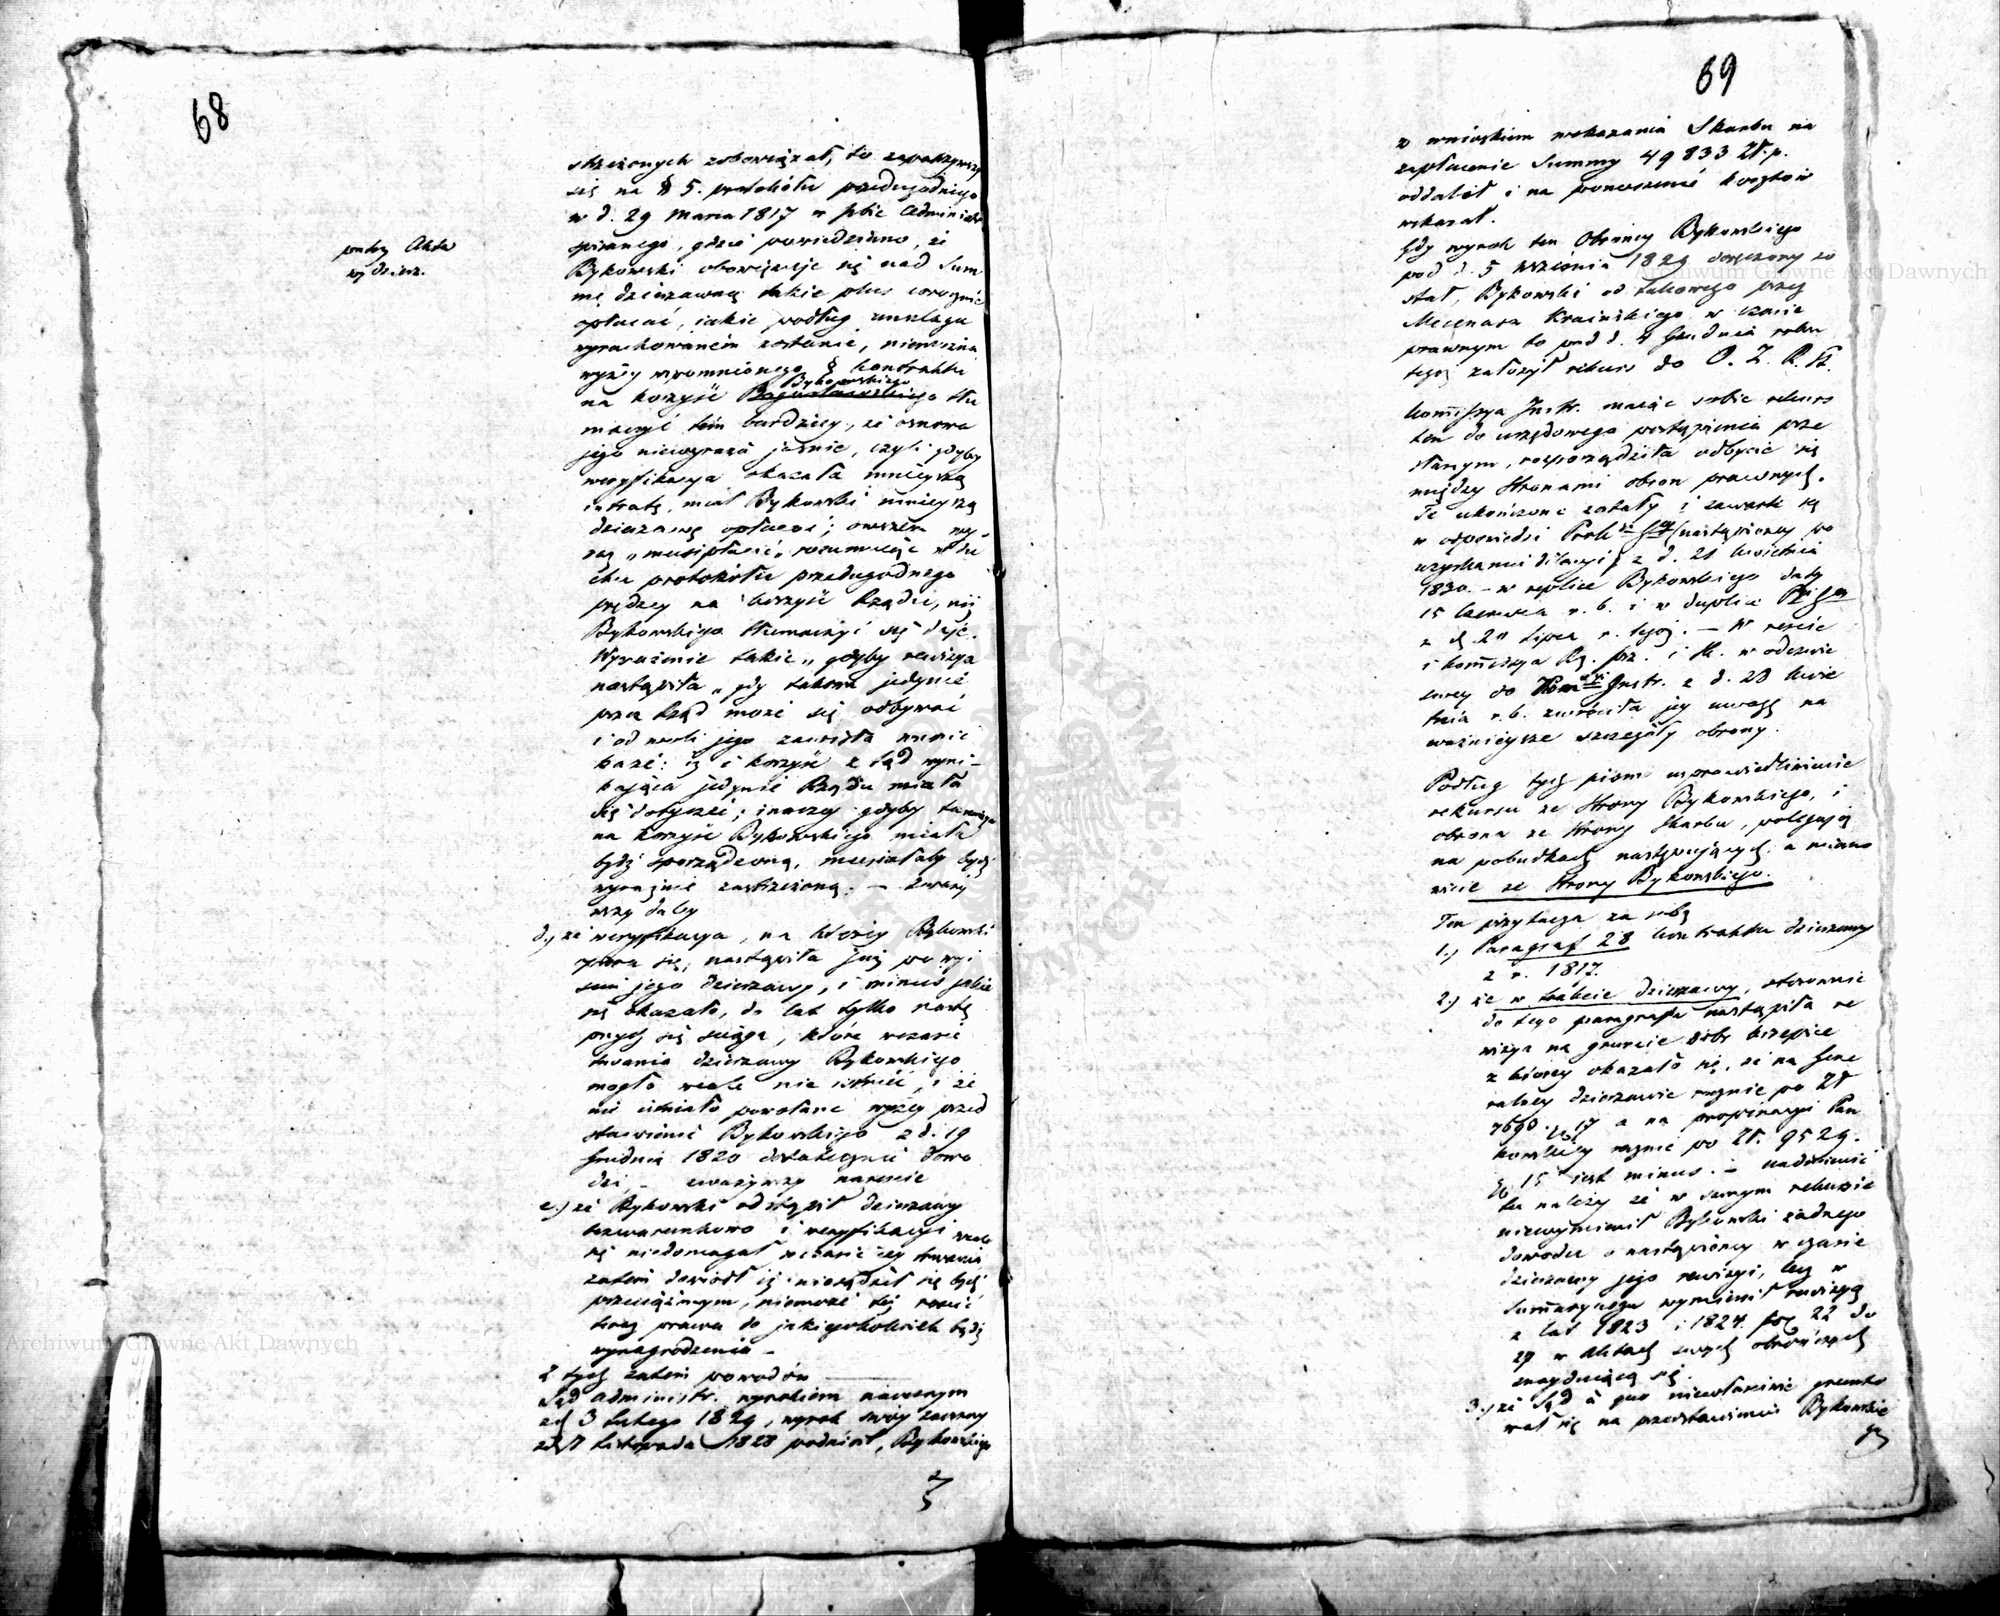 68
strzeżonych zobowiązał, to zapatrzywszy
się na § 5. protokółu przedugodniego
w d. 29 Marca 1817 w
spisanego, gdzie powiedziano, że
patrz Akta
wydzierz.
Bykowski obowiązuje się nad Sum
mę dzierzawną takie plus corocznie
opłacać, jakie podług anszlagu
wyrachowanem zostanie, niemożna
wyżey wspomnionego § kontraktu
na korzyść Bykowskiego tłu
maczyć tém bardziey, że osnowa
jego niewyraża jaśnie, czyli gdyby
weryfikacya okazała mnieyszą
intratę, miał Bykowski mnieyszą
dzierzawę opłacać; owszem wy-
raz „ma opłacać" rozumiejąc w du
chu protokółu przedugodnego
prędzey na korzyść Rządu, niż
Bykowskiego tłumaczyć się daje.
Wyrażenie takie „gdyby rewizya
nastąpiła" gdy takowa jedynie
przez Rząd może się odbywać
i od woli jego zawisła
każe: iż i korzyść z tąd wyni-
kająca jedynie Rządu miała
się dotyczeć; inaczey gdyby ta rewizya
na korzyść Bykowskiego miała
bydź sporządzoną, musiałaby bydź
wyraźnie zastrzeżoną. — Zważy
wszy daley
d.) że weryfikacya, na którey Bykowski
opiera się, nastąpiła już po wyj
ściu jego dzierzawy, i minus jakie
się okazało, do lat tylko nastę
pnych się ściąga, które w czasie
trwania dzierzawy Bykowskiego
mogło wcale nie istnieć, i że
nie istniało powołane wyżey przed
stawienie Bykowskiego z d. 19
Grudnia 1820 dostatecznie dowo
dzi, — zważywszy nareszcie
e.) że Bykowski odstąpił dzierzawy
bezwarunkowo i weryfikacyi wcale
się niedomagał w czasie jey trwania
zatém dowiódł iż niesądził się bydź
przeciążonym, niemoże też rościć
teraz prawa do jakiegokolwiek bądź
wynagrodzenia —
Z tych zatem powodów
Sąd Administr. wyrokiem naocznym
z d. 3 Lutego 1829, wyrok swóy zaoczny
z d. 7 Listopada 1828 podniósł, Bykowskiego
z
69
z wnioskiem wskazania Skarbu na
zapłacenie Summy 49833 Zł.p.
oddalił i na ponoszenie kosztów
wskazał.
Gdy wyrok ten Obrońcy Bykowskiego
pod d. 5 Września 1829 doręczony zo
stał, Bykowski od takowego przez
Mecenasa Kraińskiego w czasie
prawnym to pod d. 4 Grudnia roku
tegoż założył rekurs do O. Z. R. St.
Kommissya Instr. mając sobie rekurs
ten do urzędowego postąpienia prze
słanym, rozporządziła odbycie się
między Stronami obron prawnych.
Te ukończone zostały i zawarte są
w odpowiedzi (nastąpioney po
uzyskaniu dilacyi) z d. 21 Kwietnia
1830. — w replice Bykowskiego daty
15 Czerwca r. b. i w duplice
z d. 20 Lipca r. tegoż. — W reszcie
i Kommissya Rz. prz. i Sk. w odezwie
swey do Instr. z d. 28 Kwie
tnia r. b. zwróciła jey uwagę na
ważnieysze szczegóły obrony.
Podług tych pism usprawiedliwienie
rekursu ze Strony Bykowskiego, i
obrona ze Strony Skarbu, polegają
na pobudkach następujących a miano
wicie ze Strony Bykowskiego.
Ten przytacza za sobą
1.) Paragraf 28 kontraktu dzierzawy
z r. 1817.
2.) że w trakcie dzierzawy, stosownie
do tego paragrafu nastąpiła re
wizya na gruncie dóbr Krzepice
z którey okazało się, że na Gene
ralney dzierzawie rocznie po Zł
7690. gr 17 a na propinacyi Pan
kowskiey rocznie po Zł. 9529.
gr 15 jest minus. — nadmienić
tu należy że w samym rekursie
niewymienił Bykowski żadnego
dowodu o nastąpioney w czasie
dzierzawy jego rewizyi, lecz w
Summaryuszu wymienił rewizyą
z lat 1823 i 1824. fol 22 do
29 w Aktach swych obrończych
znayduiącą się.
3.) że Sąd à quo niewłaściwie grunto
wał się na przedstawieniu Bykowskie
go